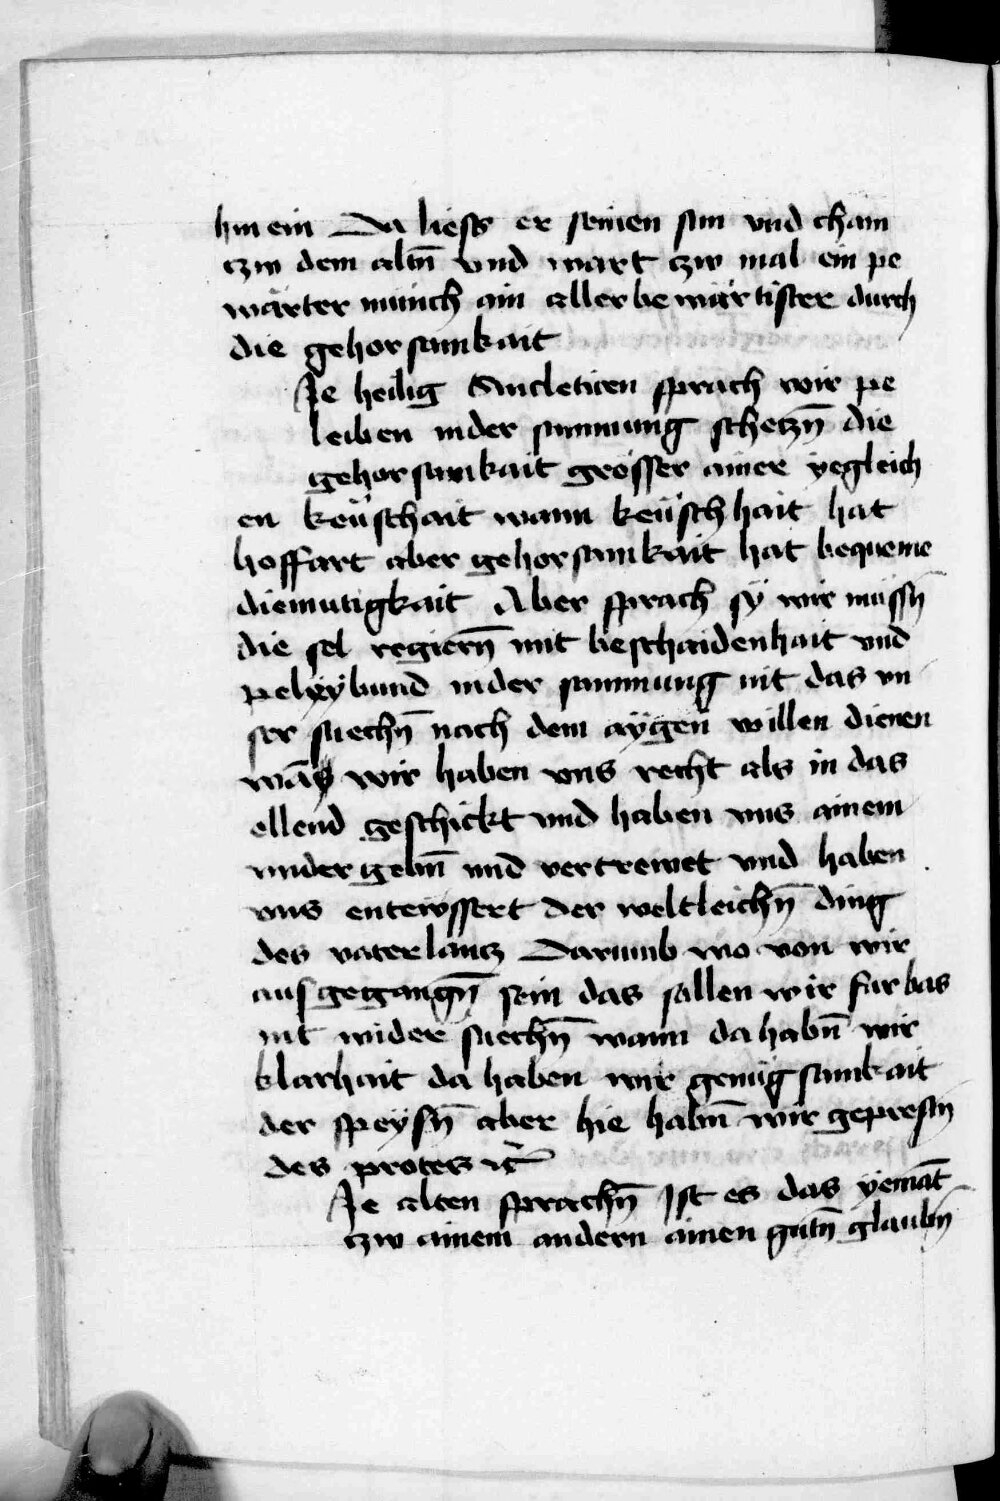 hin ein Da liess er seinen sun vnd cham
czw dem altn̄ vnd wart czw mal ein pe
wärter münich ain aller be wärtister durch
die gehorsamkait
Je heilig Sincleticen sprach wir pe
leiben in der samnung schetzn̄ die
gehorsamkait grösser ainer yegleich
en keüschait wann keüsch hait hat
hoffart aber gehorsamkait hat bequeme
diemutigkait Aber sprach sÿ wir müssn̄
die sel regiern̄ mit beschaidenhait vnd
peleybund in der samnung nit das vn
ser suechn̄ nach dem aÿgen willen dienen
wān wir haben vns recht als in das
ellend geschickt vnd haben vns ainem
vnder gebn̄ vnd vertrewet vnd haben
vns entewssert der weltleichn̄ ding
des vaterlantz Darumb wo von wir
aus gegangn̄ sein das sollen wir fur bas
nit wider suechn̄ wann da habn̄ wir
klarhait da haben wir genüg samkait
der speÿsn̄ aber hie habn̄ wir geprestn̄
des protes ꝛc̄
Je alten sprachn̄ Ist es das yemāt
czw ainem andern ainen gutn̄ glaubn̄